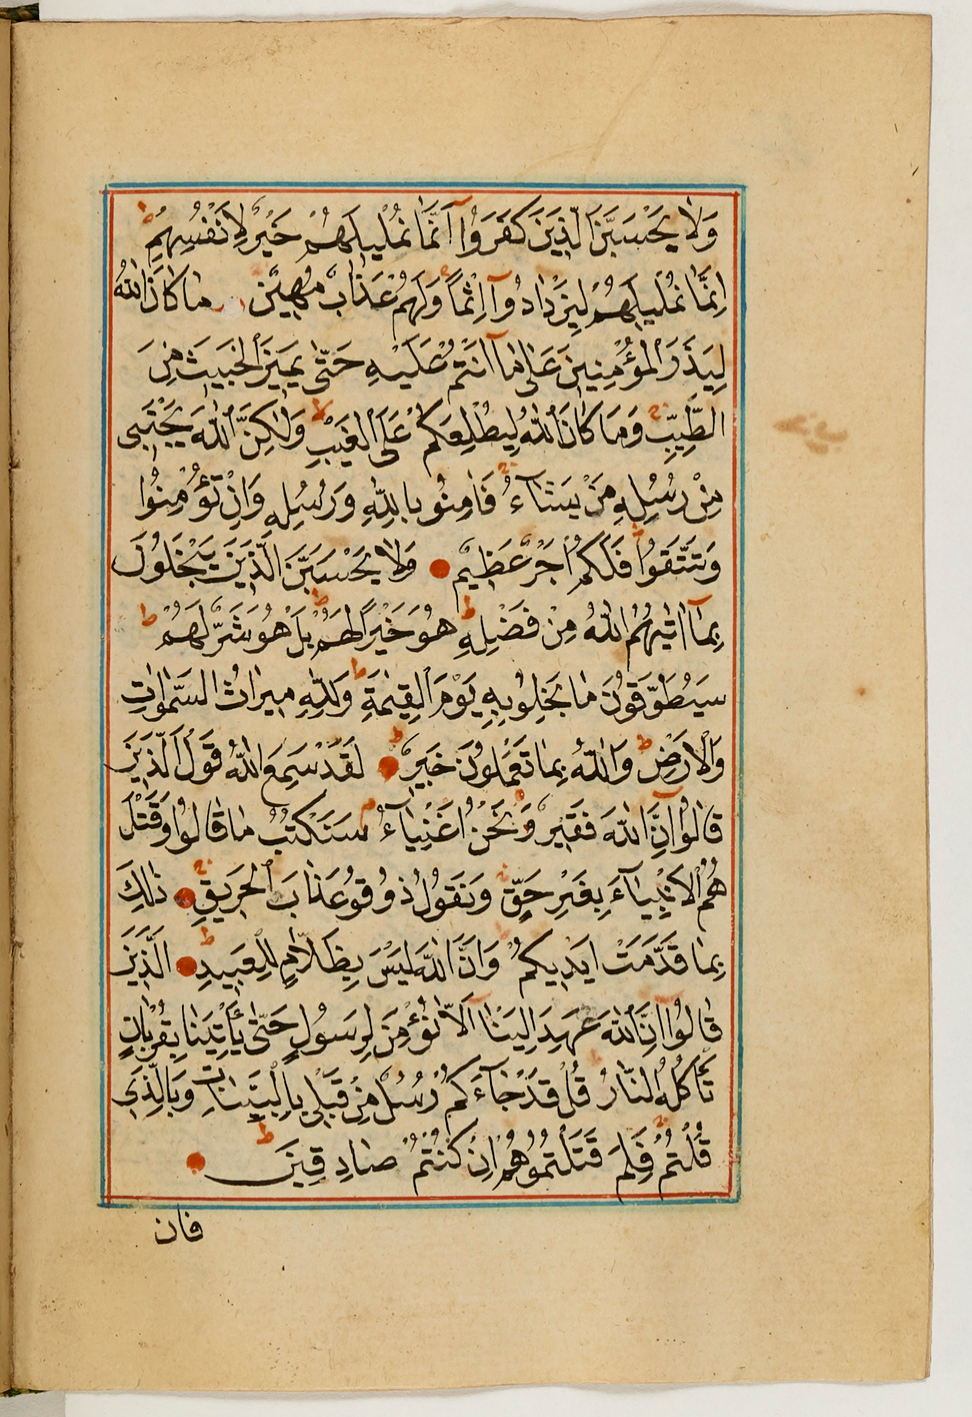 وَلَا يَحْسَبَنَّ الَّذِينَ كَفَرُوٓا اَنَّمَا نُمْلِي لَهُمْ خَيْرٌ لِاَنْفُسِهِمْ ط
اِنَّمَا نُمْلِي لَهُمْ لِيَزْدَادُوٓا اِثْمًا وَلَهُمْ عَذَابٌ مُهِينٌ مَا كَانَ اللّٰهُ
لِيَذَرَ الْمُؤْمِنِينَ عَلٰى مَآ اَنْتُمْ عَلَيْهِ حَتّٰى يَمِيزَ الْخَبِيثَ مِنَ
الطَّيِّبِ ج وَمَا كَانَ اللّٰهُ لِيُطْلِعَكُمْ عَلَى الْغَيْبِ لا وَلٰكِنَّ اللّٰهَ يَجْتَبِى
مِنْ رُسُلِهِ مَنْ يَشَآءُ ج فَاٰمِنُو بِاللّٰهِ وَرُسُلِهِ وَاِنْ تُؤْمِنُوا
وَتَتَّقُوا فَلَكُمْ اَجْرٌ عَظِيمٌ وَلَا يَحْسَبَنَّ الَّذِينَ يَبْخَلُونَ
بِمَآ اٰتٰيهُمُ اللّٰهُ مِنْ فَضْلِهِ ط هُوَ خَيْرًا لَهُمْ ط بَلْ هُوَ شَرٌّ لَهُمْ ط
سَيُطَوَّقُونَ مَا بَخِلُو بِهِ يَوْمَ الْقِيٰمَةِ ط وَلِلّٰهِ مِيرَاثُ السَّمٰوَاتِ
وَالْاَرْضِ ط وَاللّٰهُ بِمَا تَعْمَلُونَ خَبِيرٌ ط لَقَدْ سَمِعَ اللّٰهُ قَوْلَ الَّذِينَ
قَالُوٓا اِنَّ اللّٰهَ فَقِيرٌ وَنَحْنُ اَغْنِيَآءُ م سَنَكْتُبُ مَا قَالُوا وَقَتْلَ
هُمُ الْاَنْبِيَآءَ بِغَيْرِ حَقٍّ وَنَقُولُ ذُوقُو عَذَابَ الْحَرِيقِ ج ذٰلِكَ
بِمَا قَدَّمَتْ اَيْدِيكُمْ وَاَنَّ اللّٰهَ لَيْسَ بِظَلَّامٍ لِلْعَبِيدِ ط اَلَّذِينَ
قَالُوٓا اِنَّ اللّٰهَ عَهِدَ اِلَيْنَآ اَلَّا نُؤْمِنَ لِرَسُولٍ حَتّٰى يَأْتِيَنَا بِقُرْبَانٍ
تَأْكُلُهُ النَّارُ قُلْ قَدْ جَآءَكُمْ رُسُلٌ مِنْ قَبْلِي بِالْبَيِّنَاتِ وَبِالَّذِي
قُلْتُمْ ج فَلِمَ قَتَلْتُمُوهُمْ اِنْ كُنْتُمْ صَادِقِينَ ط
فان